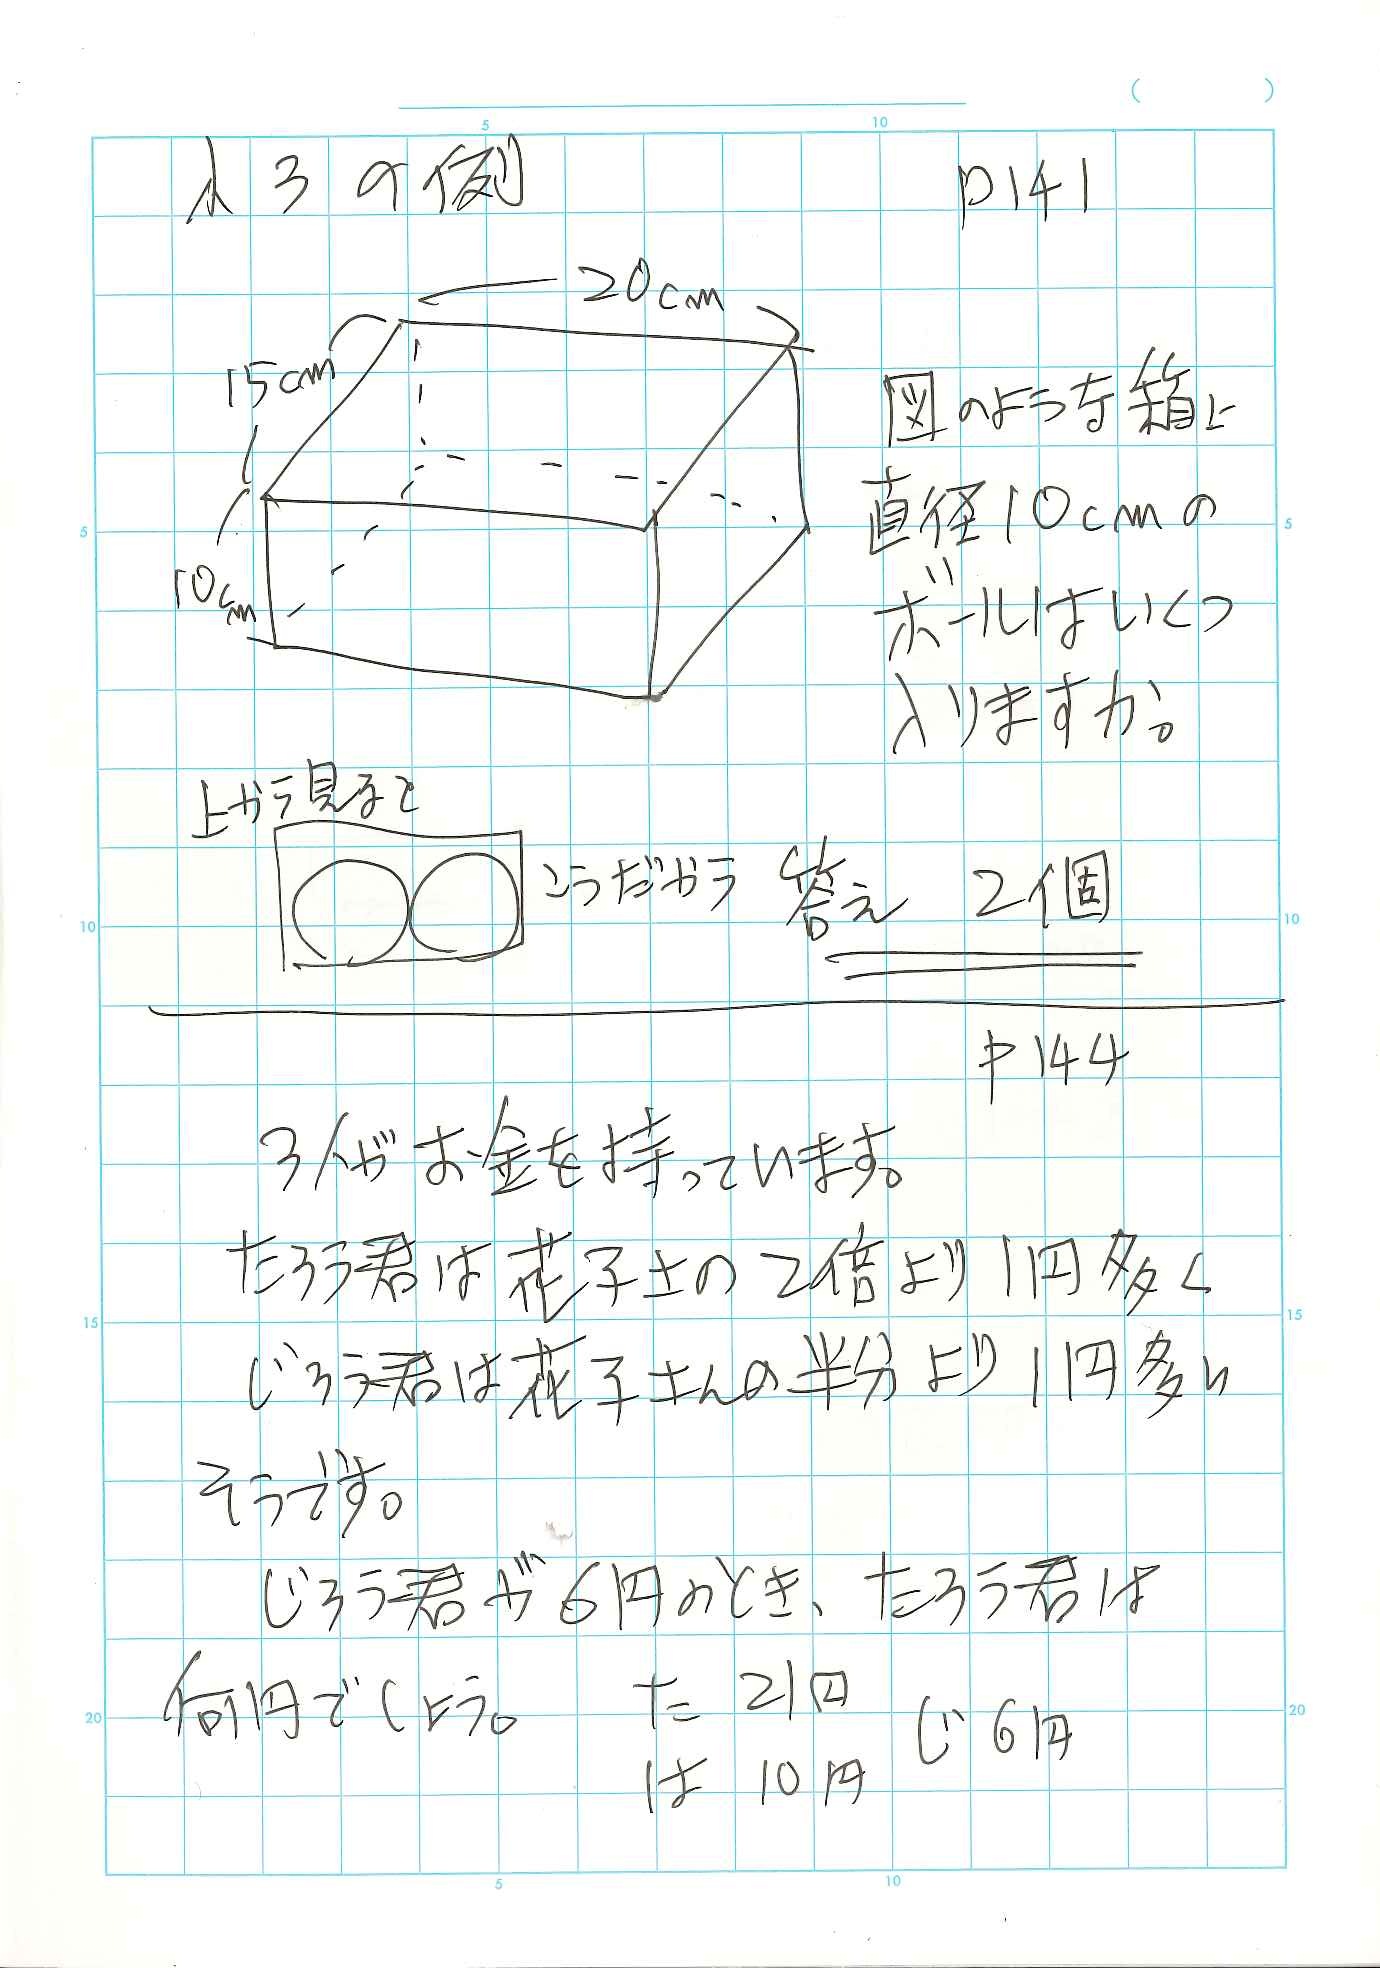 ( )
5 10
入3の例 P141
20cm
15cm
10cm
図のような箱に
直径10cmの
ボールはいくつ
入りますか。
5 5
上から見ると
こうだから 答え 2個
10 10
P144
3人がお金を持っています。
たろう君は花子さの2倍より1円多く
15 15
じろう君は花子さんの半分より1円多い
そうです。
じろう君が6円のとき、たろう君は
何円でしょう。 た 21円 じ 6円
は 10円
20 20
5 10